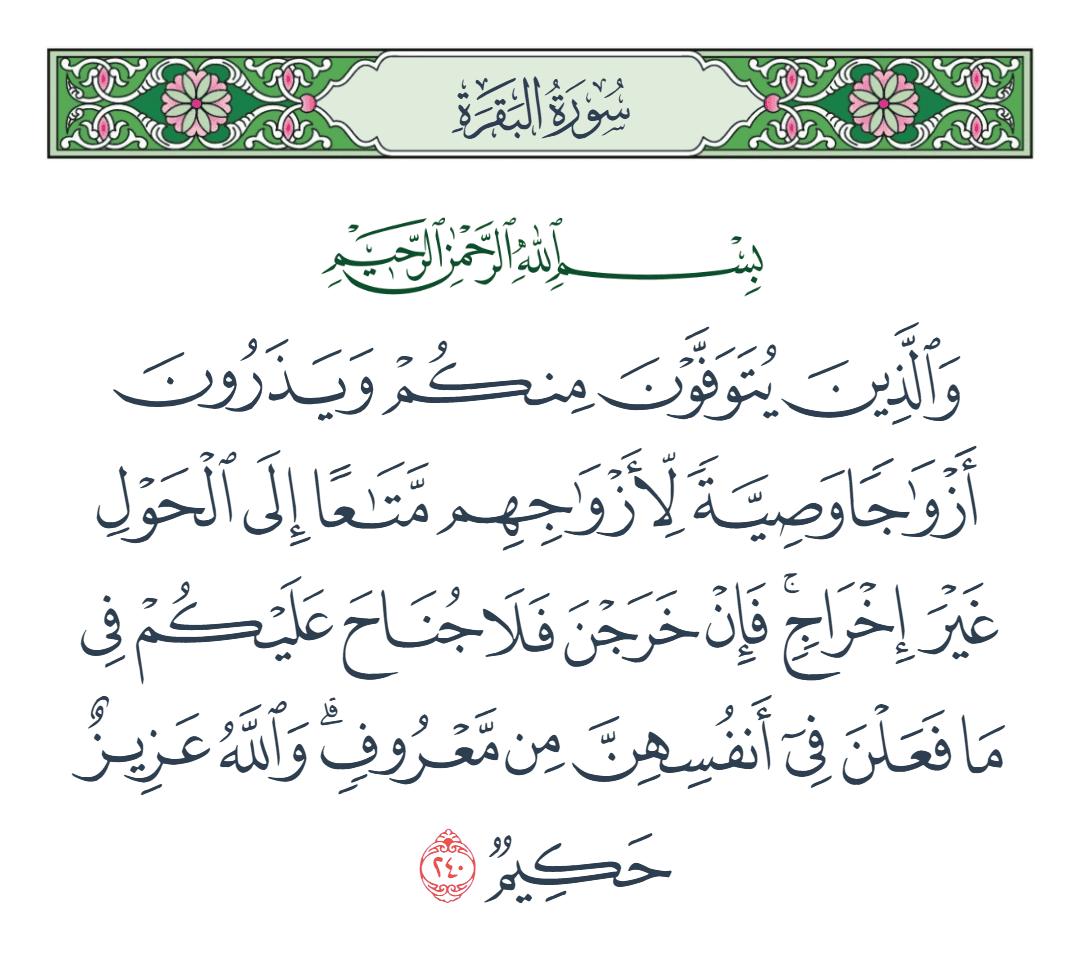 سُورَةُ البَقَرَةِ
بِسْمِ ٱللَّهِ ٱلرَّحْمَٰنِ ٱلرَّحِيمِ
وَٱلَّذِينَ يُتَوَفَّوْنَ مِنكُمْ وَيَذَرُونَ
أَزْوَٰجًا وَصِيَّةً لِّأَزْوَٰجِهِم مَّتَـٰعًا إِلَى ٱلْحَوْلِ
غَيْرَ إِخْرَاجٍ ۚ فَإِنْ خَرَجْنَ فَلَا جُنَاحَ عَلَيْكُمْ فِى
مَا فَعَلْنَ فِىٓ أَنفُسِهِنَّ مِن مَّعْرُوفٍ ۗ وَٱللَّهُ عَزِيزٌ
حَكِيمٌ ٢٤٠